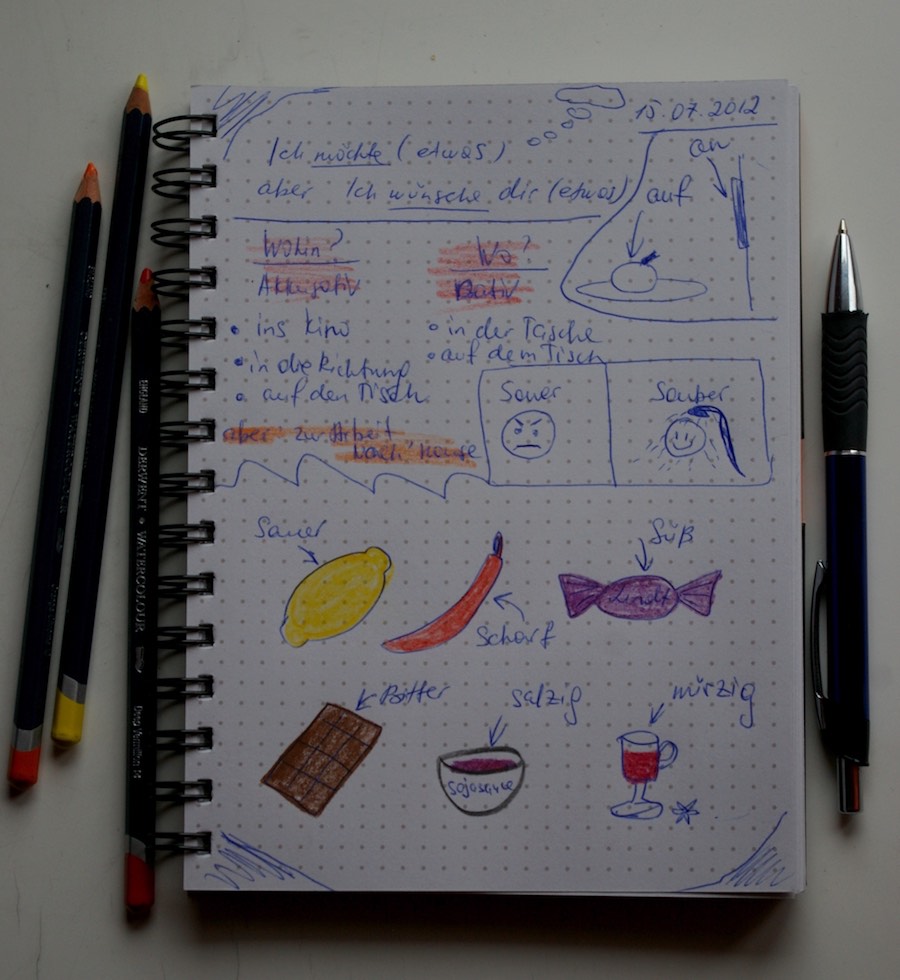 15.07.2012
Ich möchte (etwas)
aber Ich wünsche dir (etwas)
an
auf
Wohin?
Akkusativ
• ins Kino
• in die Richtung
• auf den Tisch
aber zur Arbeit
nach Hause
Wo?
Dativ
• in der Tasche
• auf dem Tisch
Sauer
Sauber
Sauer
Scharf
Süß
Lindt
Bitter
salzig
Sojasauce
würzig
DERWENT WATERCOLOUR